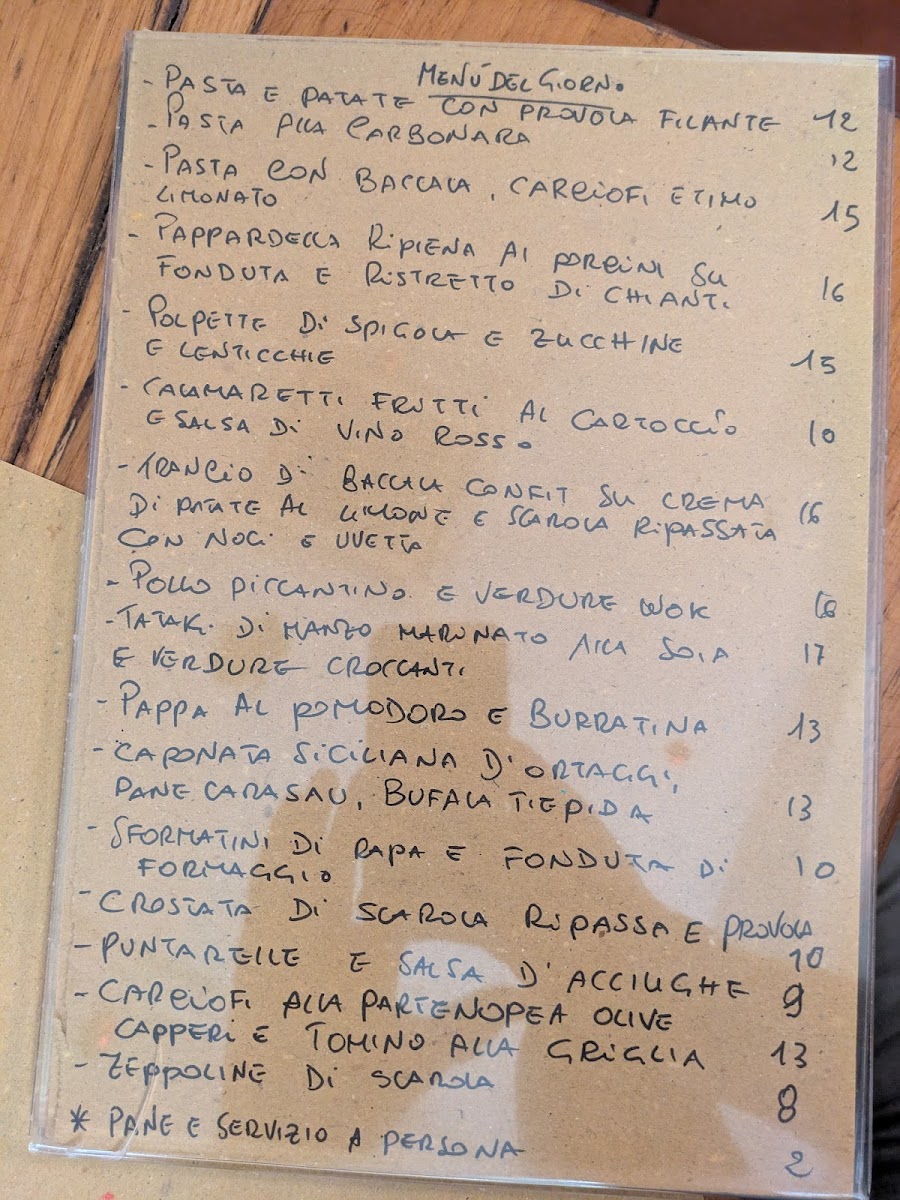 MENÚ DEL GIORNO
- PASTA E PATATE CON PROVOLA FILANTE 12
- PASTA ALLA CARBONARA 12
- PASTA CON BACCALA, CARCIOFI E TIMO
LIMONATO 15
- PAPPARDELLA RIPIENA AI PORCINI SU
FONDUTA E RISTRETTO DI CHIANTI. 16
- POLPETTE DI SPIGOLA E ZUCCHINE
E LENTICCHIE 15
- CALAMARETTI FRITTI AL CARTOCCIO
E SALSA DI VINO ROSSO 10
- TRANCIO DI BACCALA CONFIT SU CREMA
DI PATATE AL LIMONE E SCAROLA RIPASSATA 16
CON NOCI E UVETTA
- POLLO PICCANTINO E VERDURE WOK
- TATAKI DI MANZO MARINATO ALLA SOIA 17
E VERDURE CROCCANTI
- PAPPA AL POMODORO E BURRATINA 13
- CAPONATA SICILIANA D'ORTAGGI,
PANE CARASAU, BUFALA TIEPIDA 13
- SFORMATINI DI RAPA E FONDUTA DI
FORMAGGIO 10
- CROSTATA DI SCAROLA RIPASSA E PROVOLA
10
- PUNTARELLE E SALSA D'ACCIUGHE 9
- CARCIOFI ALLA PARTENOPEA OLIVE
CAPPERI E TOMINO ALLA GRIGLIA 13
- ZEPPOLINE DI SCAROLA 8
* PANE E SERVIZIO A PERSONA 2